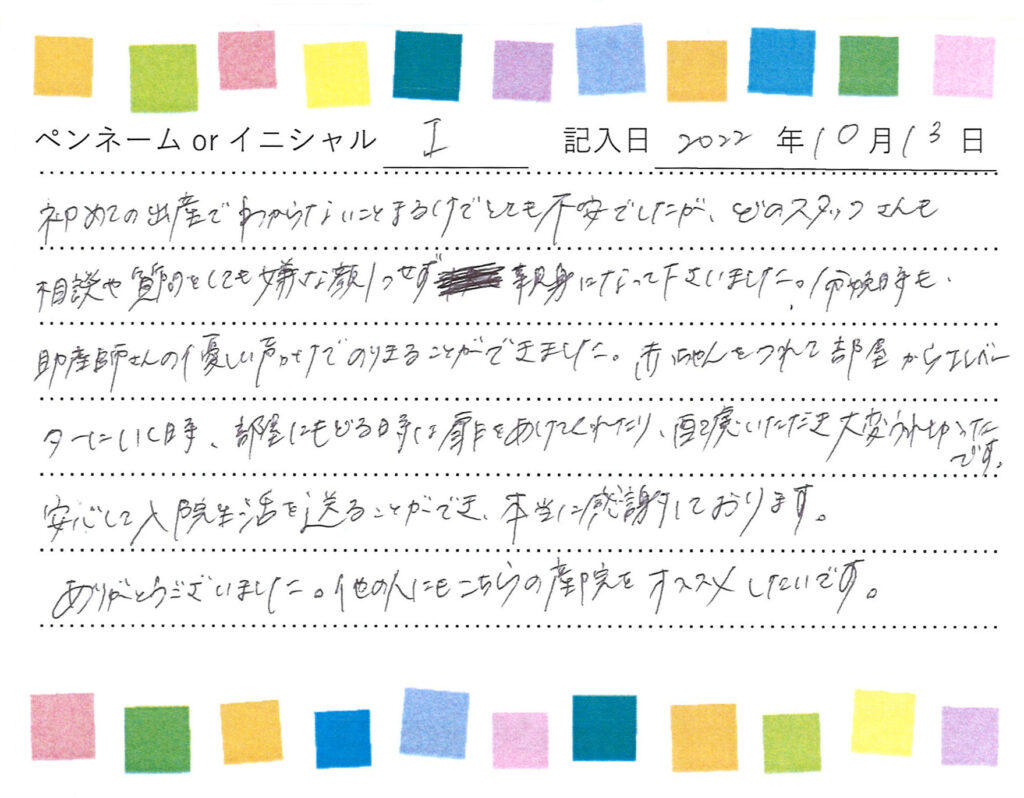 ペンネーム or イニシャル I 記入日 2022 年 10 月 13 日
初めての出産でわからないことまるけでとても不安でしたが、どのスタッフさんも
相談や質問をしても嫌な顔1つせず 親身になって下さいました。陣痛時も、
助産師さんの優しい声かけでのりきることができました。赤ちゃんをつれて部屋からエレベー
ターにいく時、部屋にもどる時は扉をあけてくれたり、配慮いただき大変うれしかった
です。
安心して入院生活を送ることができ、本当に感謝しております。
ありがとうございました。他の人にもこちらの産院をオススメしたいです。